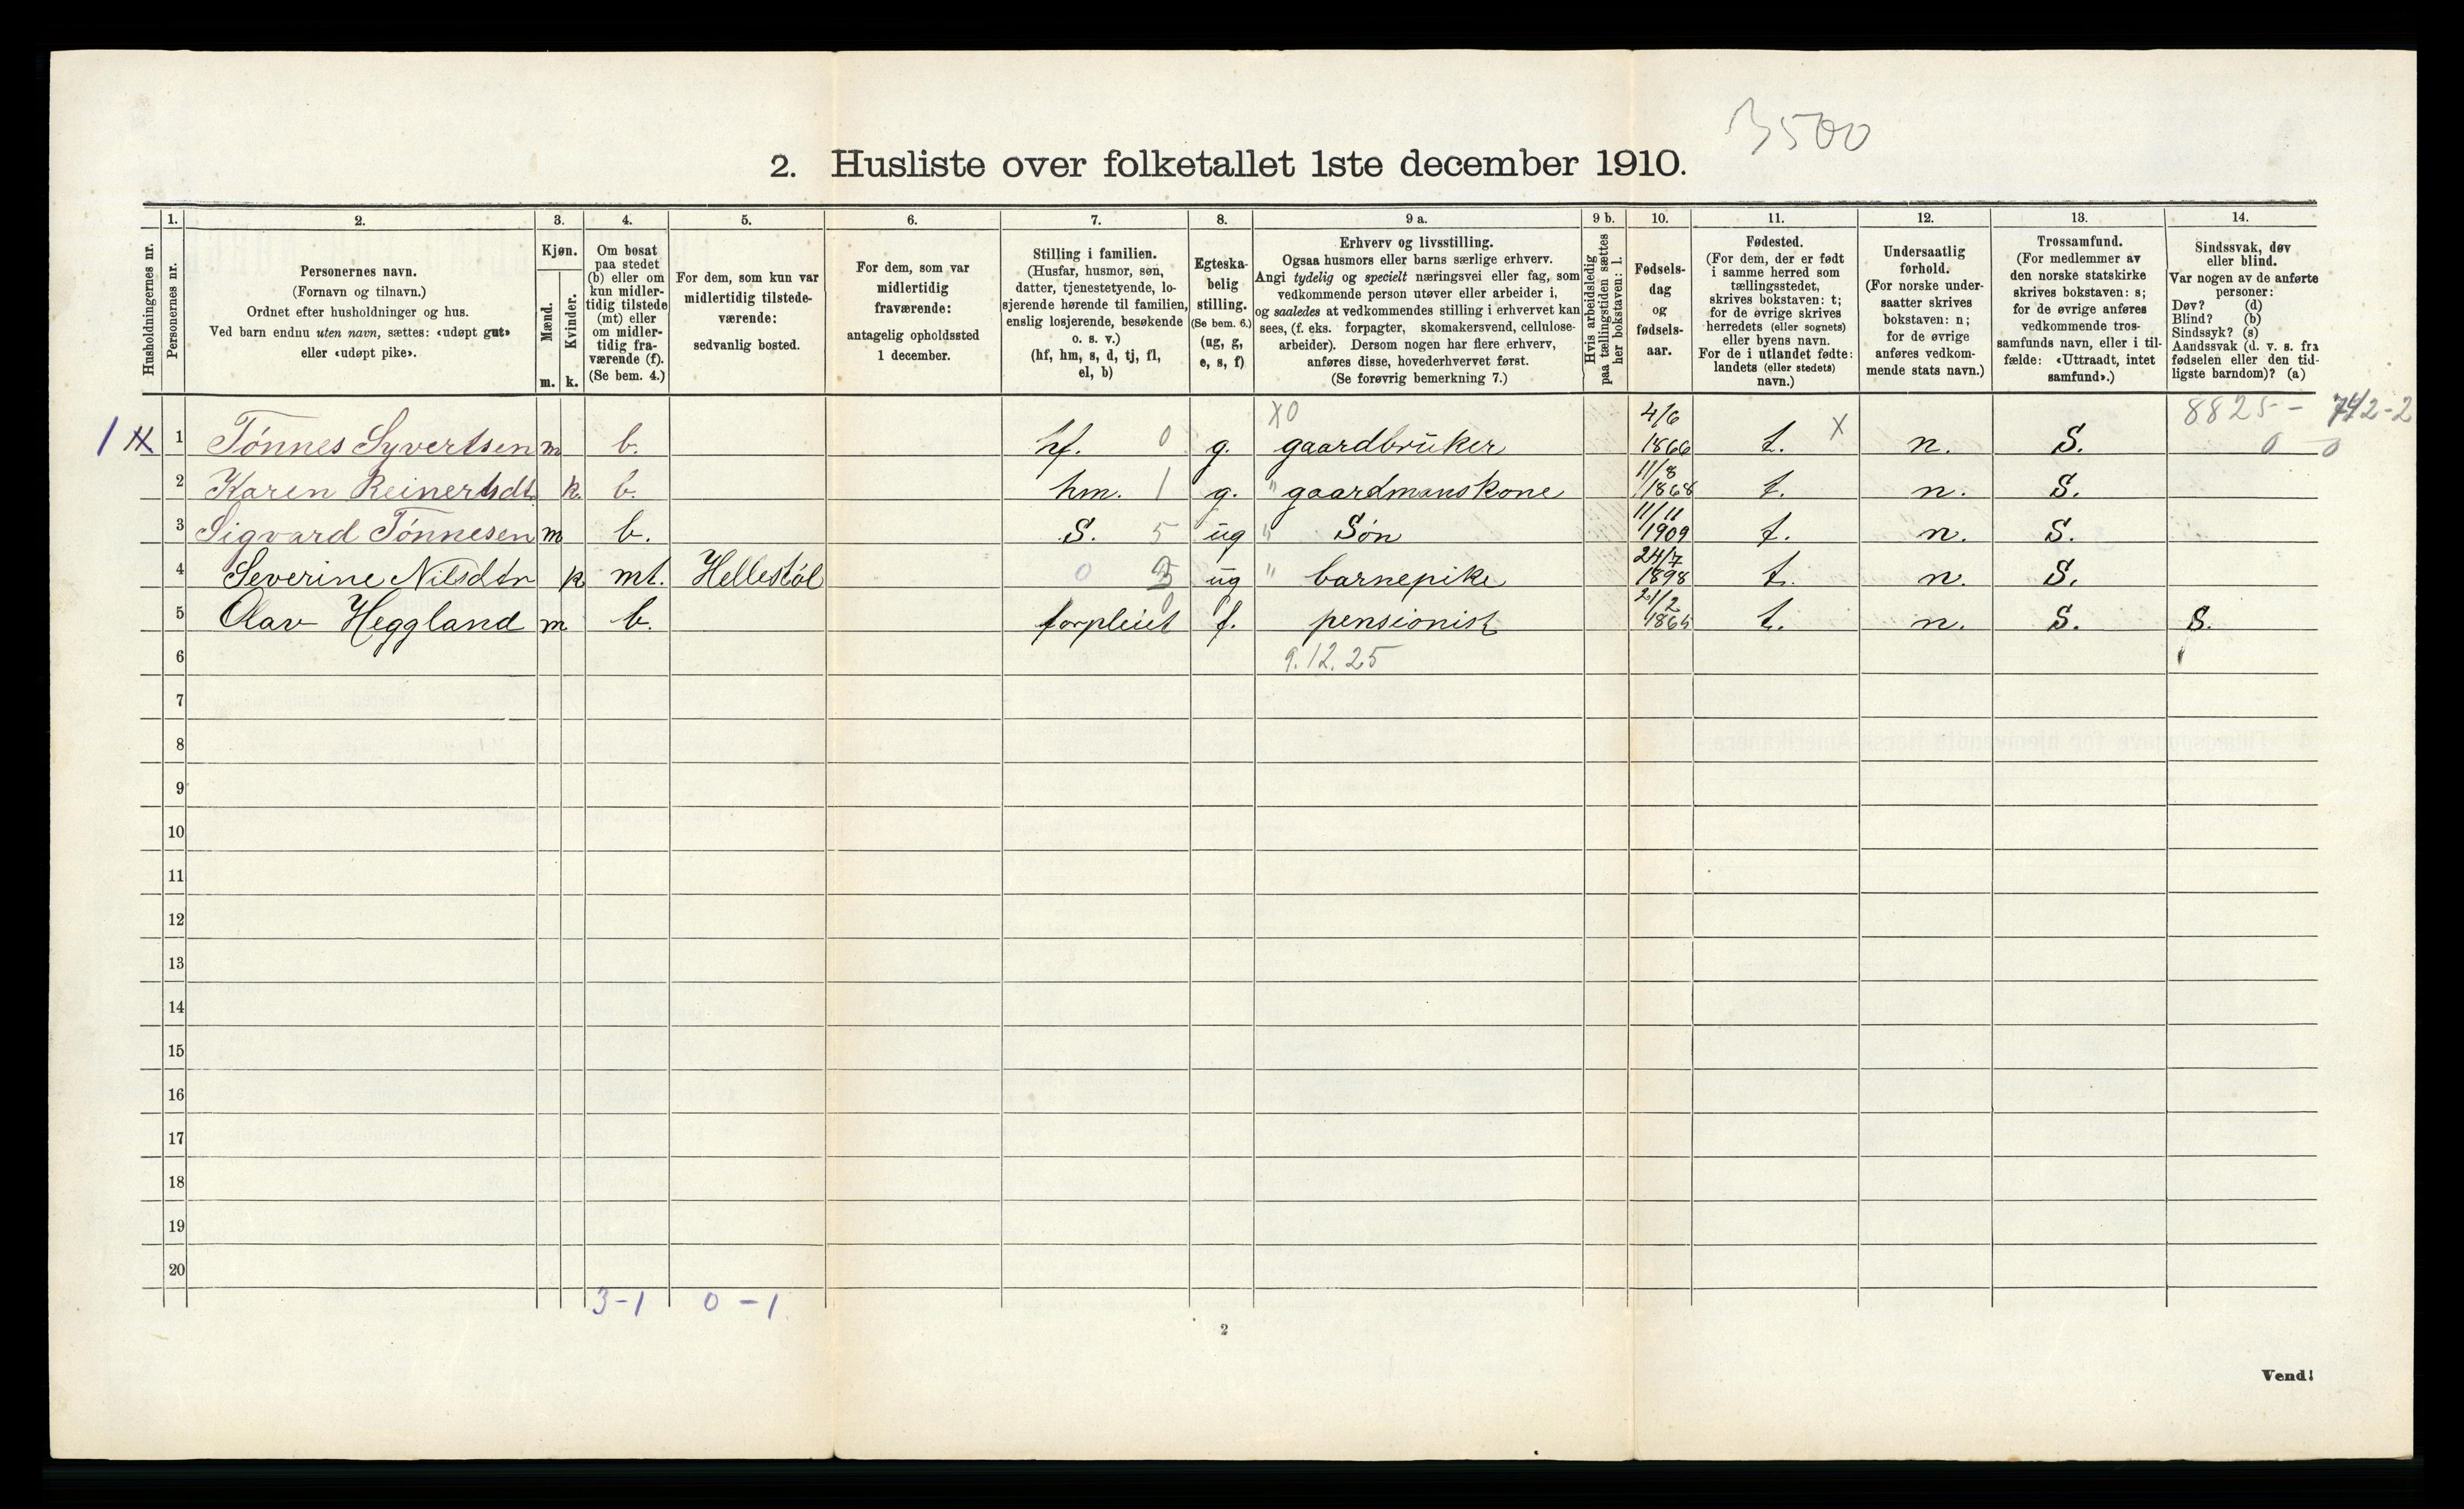 3500
2. Husliste over folketallet 1ste december 1910.
Husholdningernes nr.
1. Personernes nr.
2. Personernes navn.
(Fornavn og tilnavn.)
Ordnet efter husholdninger og hus.
Ved barn endnu uten navn, sættes: «udøpt gut»
eller «udøpt pike».
3. Kjøn.
Mænd. m.
Kvinder. k.
4. Om bosat
paa stedet
(b) eller om
kun midler-
tidig tilstede
(mt) eller
om midler-
tidig fra-
værende (f).
(Se bem. 4.)
5. For dem, som kun var
midlertidig tilstede-
værende:
sedvanlig bosted.
6. For dem, som var
midlertidig
fraværende:
antagelig opholdssted
1 december.
7. Stilling i familien.
(Husfar, husmor, søn,
datter, tjenestetyende, lo-
sjerende hørende til familien,
enslig losjerende, besøkende
o. s. v.)
(hf, hm, s, d, tj, fl,
el, b)
8. Egteska-
belig
stilling.
(Se bem. 6.)
(ug, g,
e, s, f)
9 a. Erhverv og livsstilling.
Ogsaa husmors eller barns særlige erhverv.
Angi tydelig og specielt næringsvei eller fag, som
vedkommende person utøver eller arbeider i,
og saaledes at vedkommendes stilling i erhvervet kan
sees, (f. eks. forpagter, skomakersvend, cellulose-
arbeider). Dersom nogen har flere erhverv,
anføres disse, hovederhvervet først.
(Se forøvrig bemerkning 7.)
9 b. Hvis arbeidsledig
paa tællingstiden sættes
her bokstaven: l.
10. Fødsels-
dag
og
fødsels-
aar.
11. Fødested.
(For dem, der er født
i samme herred som
tællingsstedet,
skrives bokstaven: t;
for de øvrige skrives
herredets (eller sognets)
eller byens navn.
For de i utlandet fødte:
landets (eller stedets)
navn.)
12. Undersaatlig
forhold.
(For norske under-
saatter skrives
bokstaven: n;
for de øvrige
anføres vedkom-
mende stats navn.)
13. Trossamfund.
(For medlemmer av
den norske statskirke
skrives bokstaven: s;
for de øvrige anføres
vedkommende tros-
samfunds navn, eller i til-
fælde: «Uttraadt, intet
samfund».)
14. Sindssvak, døv
eller blind.
Var nogen av de anførte
personer:
Døv? (d)
Blind? (b)
Sindssyk? (s)
Aandssvak (d. v. s. fra
fødselen eller den tid-
ligste barndom)? (a)
X0 4/6 8825 - 742-2
1 1 Tønnes Syvertsen m b. hf. 0 g. gaardbruker 1866 t. X n. S. 0 0
2 Karen Reinertsdt. k b. hm. 1 g. " gaardmanskone 11/8 1868 t. n. S.
3 Sigvard Tønnesen m b. S. 5 ug " Søn 11/11 1909 t. n. S.
4 Severine Nilsdtr k mt. Hellestøl 0 ug " barnepike 24/7 1898 t. n. S.
5 Olav Heggland m b. forpleiet 0 f. pensionist 21/2 t. n. S. S.
6 9.12.25
7
8
9
10
11
12
13
14
15
16
17
18
19
20
3-1 0-1
2
Vend!